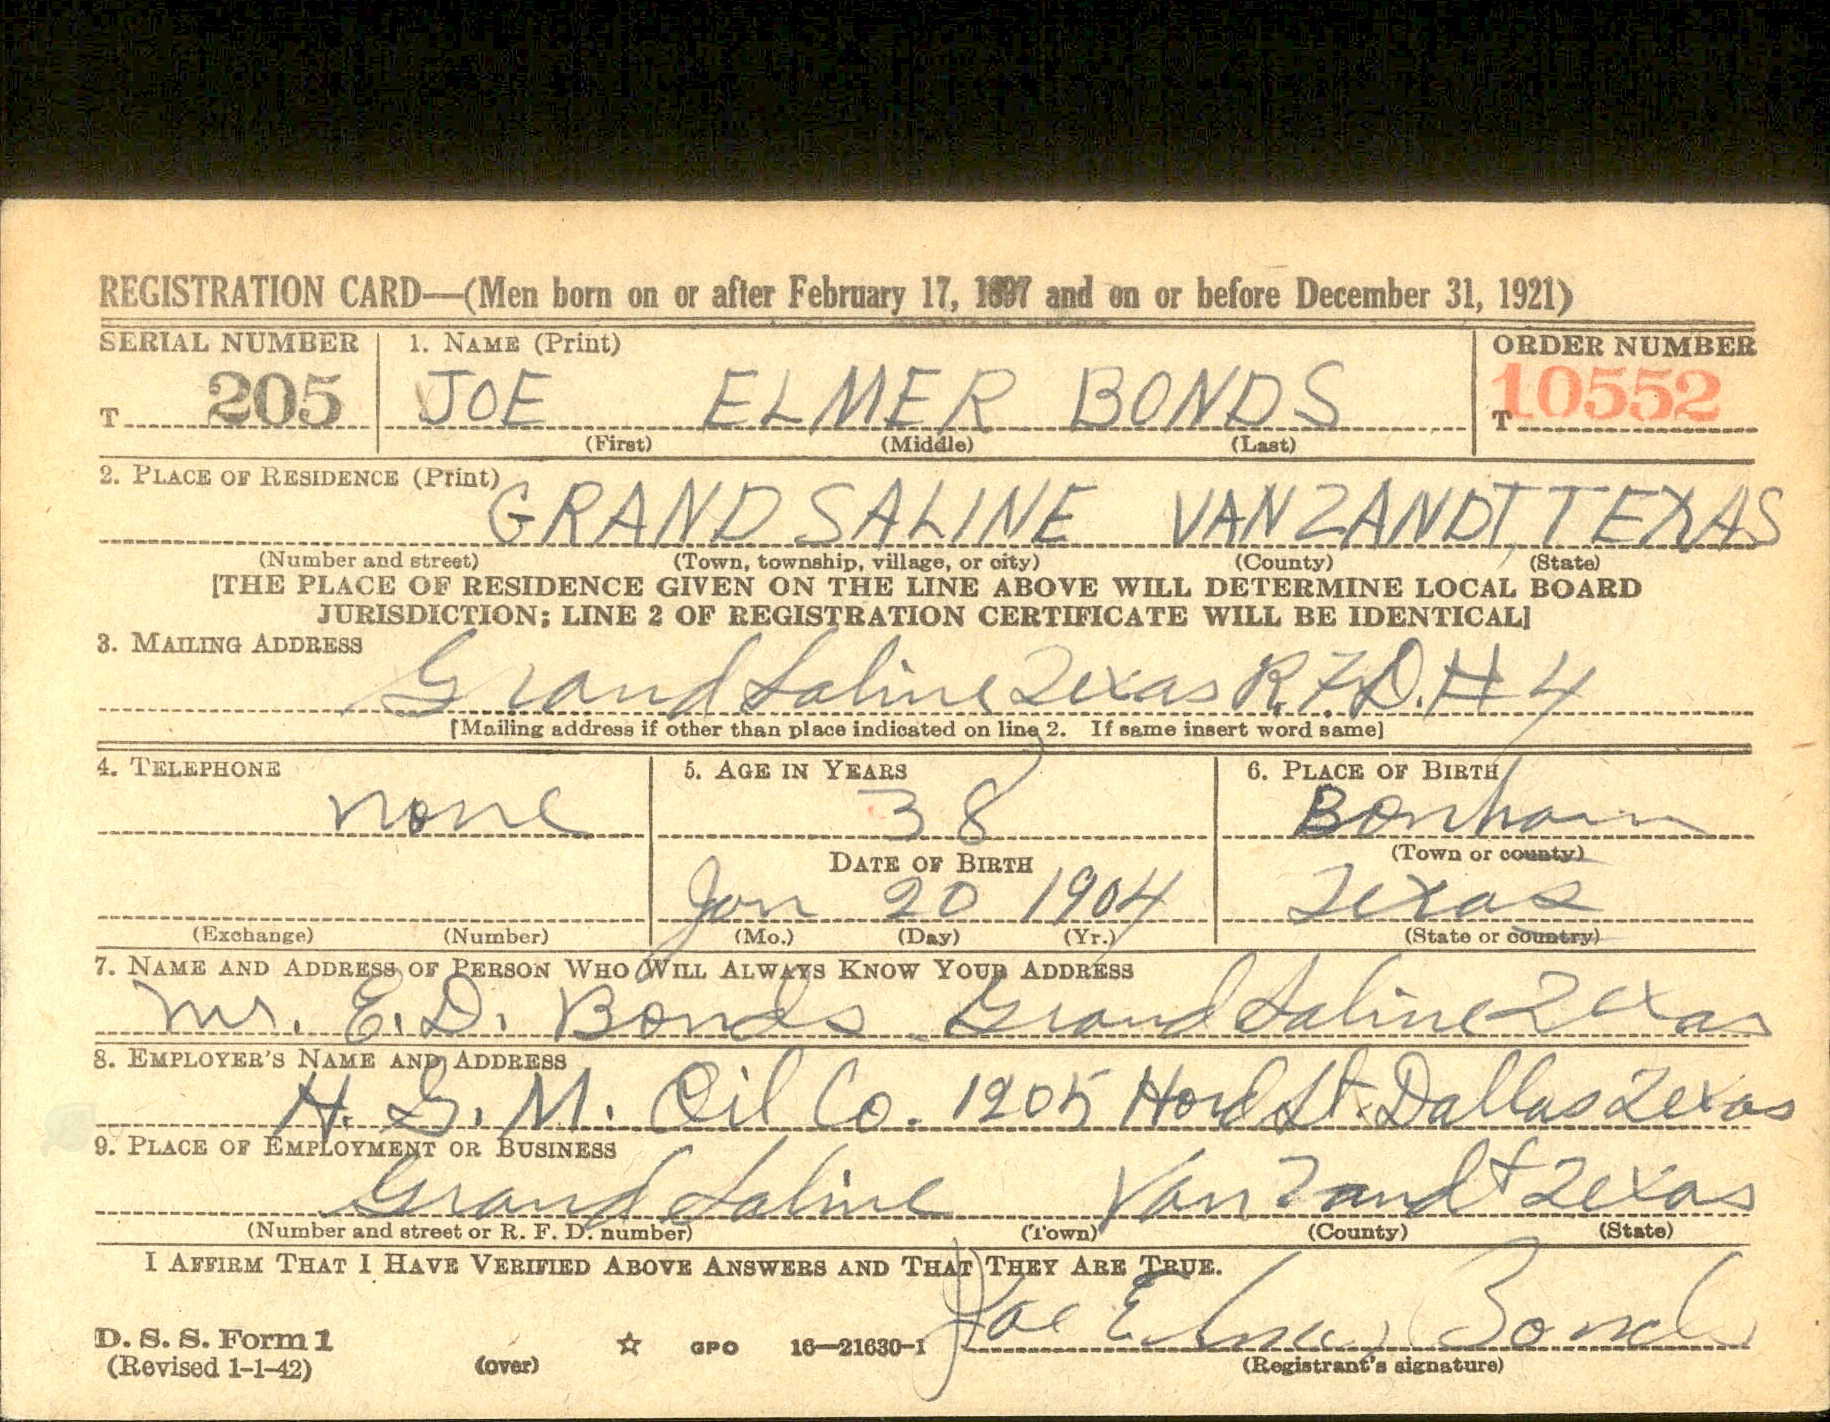 REGISTRATION CARD—(Men born on or after February 17, 1897 and on or before December 31, 1921)
SERIAL NUMBER 1. NAME (Print) ORDER NUMBER
T 205 JOE ELMER BONDS T 10552
(First) (Middle) (Last)
2. PLACE OF RESIDENCE (Print)
GRAND SALINE VAN ZANDT, TEXAS
(Number and street) (Town, township, village, or city) (County) (State)
[THE PLACE OF RESIDENCE GIVEN ON THE LINE ABOVE WILL DETERMINE LOCAL BOARD
JURISDICTION; LINE 2 OF REGISTRATION CERTIFICATE WILL BE IDENTICAL]
3. MAILING ADDRESS
Grand Saline Texas R.F.D. # 4
[Mailing address if other than place indicated on line 2. If same insert word same]
4. TELEPHONE 5. AGE IN YEARS 6. PLACE OF BIRTH
none 38 Bonham
DATE OF BIRTH (Town or county)
Jan 20 1904 Texas
(Exchange) (Number) (Mo.) (Day) (Yr.) (State or country)
7. NAME AND ADDRESS OF PERSON WHO WILL ALWAYS KNOW YOUR ADDRESS
Mr. E. D. Bonds Grand Saline Texas
8. EMPLOYER'S NAME AND ADDRESS
H. G. M. Oil Co. 1205 Hord St. Dallas Texas
9. PLACE OF EMPLOYMENT OR BUSINESS
Grand Saline Van Zandt Texas
(Number and street or R. F. D. number) (Town) (County) (State)
I AFFIRM THAT I HAVE VERIFIED ABOVE ANSWERS AND THAT THEY ARE TRUE.
Joe Elmer Bonds
D. S. S. Form 1
(Revised 1-1-42) (over) GPO 16—21630-1 (Registrant's signature)